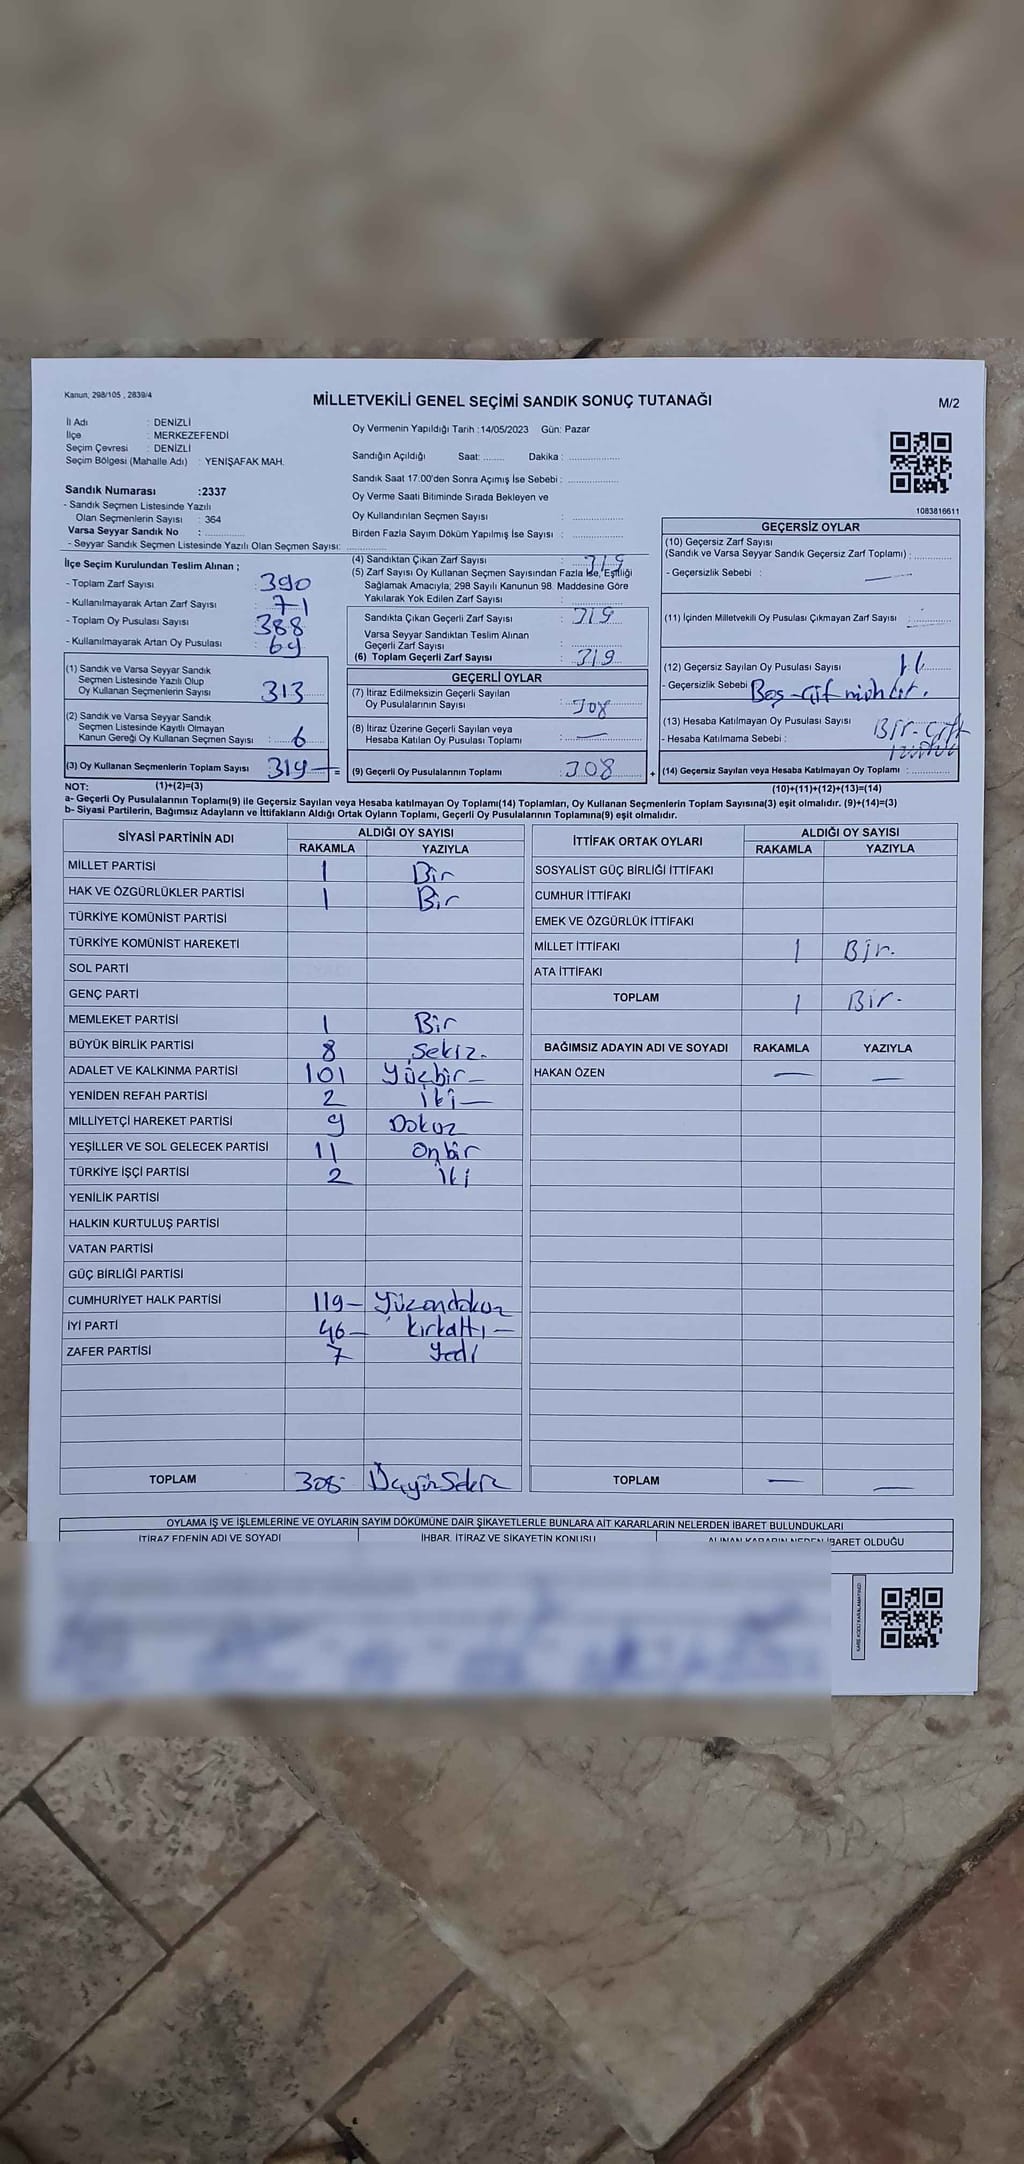 Kanun, 298/105 , 2839/4
MİLLETVEKİLİ GENEL SEÇİMİ SANDIK SONUÇ TUTANAĞI
M/2
İl Adı : DENİZLİ
İlçe : MERKEZEFENDİ
Seçim Çevresi : DENİZLİ
Seçim Bölgesi (Mahalle Adı) : YENİŞAFAK MAH.
Sandık Numarası :2337
- Sandık Seçmen Listesinde Yazılı
Olan Seçmenlerin Sayısı : 364
Varsa Seyyar Sandık No :
- Seyyar Sandık Seçmen Listesinde Yazılı Olan Seçmen Sayısı:
Oy Vermenin Yapıldığı Tarih :14/05/2023 Gün: Pazar
Sandığın Açıldığı Saat: Dakika :
Sandık Saat 17:00'den Sonra Açılmış İse Sebebi :
Oy Verme Saati Bitiminde Sırada Bekleyen ve
Oy Kullandırılan Seçmen Sayısı :
Birden Fazla Sayım Döküm Yapılmış İse Sayısı :
1083816611
İlçe Seçim Kurulundan Teslim Alınan ;
- Toplam Zarf Sayısı : 390
- Kullanılmayarak Artan Zarf Sayısı : 71
- Toplam Oy Pusulası Sayısı : 388
- Kullanılmayarak Artan Oy Pusulası : 69
(1) Sandık ve Varsa Seyyar Sandık
Seçmen Listesinde Yazılı Olup
Oy Kullanan Seçmenlerin Sayısı : 313
(2) Sandık ve Varsa Seyyar Sandık
Seçmen Listesinde Kayıtlı Olmayan
Kanun Gereği Oy Kullanan Seçmen Sayısı : 6
(3) Oy Kullanan Seçmenlerin Toplam Sayısı 319 =
(4) Sandıktan Çıkan Zarf Sayısı : 319
(5) Zarf Sayısı Oy Kullanan Seçmen Sayısından Fazla İse, Eşitliği
Sağlamak Amacıyla, 298 Sayılı Kanunun 98. Maddesine Göre
Yakılarak Yok Edilen Zarf Sayısı :
Sandıkta Çıkan Geçerli Zarf Sayısı : 319
Varsa Seyyar Sandıktan Teslim Alınan
Geçerli Zarf Sayısı :
(6) Toplam Geçerli Zarf Sayısı : 319
GEÇERLİ OYLAR
(7) İtiraz Edilmeksizin Geçerli Sayılan
Oy Pusulalarının Sayısı : 308
(8) İtiraz Üzerine Geçerli Sayılan veya
Hesaba Katılan Oy Pusulası Toplamı : —
(9) Geçerli Oy Pusulalarının Toplamı : 308 +
GEÇERSİZ OYLAR
(10) Geçersiz Zarf Sayısı
(Sandık ve Varsa Seyyar Sandık Geçersiz Zarf Toplamı) :
- Geçersizlik Sebebi : —
(11) İçinden Milletvekili Oy Pusulası Çıkmayan Zarf Sayısı :
(12) Geçersiz Sayılan Oy Pusulası Sayısı : 11
- Geçersizlik Sebebi
(13) Hesaba Katılmayan Oy Pusulası Sayısı
- Hesaba Katılmama Sebebi :
(14) Geçersiz Sayılan veya Hesaba Katılmayan Oy Toplamı :
NOT: (1)+(2)=(3) (10)+(11)+(12)+(13)=(14)
a- Geçerli Oy Pusulalarının Toplamı(9) ile Geçersiz Sayılan veya Hesaba katılmayan Oy Toplamı(14) Toplamları, Oy Kullanan Seçmenlerin Toplam Sayısına(3) eşit olmalıdır. (9)+(14)=(3)
b- Siyasi Partilerin, Bağımsız Adayların ve İttifakların Aldığı Ortak Oyların Toplamı, Geçerli Oy Pusulalarının Toplamına(9) eşit olmalıdır.
SİYASİ PARTİNİN ADI ALDIĞI OY SAYISI
RAKAMLA YAZIYLA
MİLLET PARTİSİ 1 Bir
HAK VE ÖZGÜRLÜKLER PARTİSİ 1 Bir
TÜRKİYE KOMÜNİST PARTİSİ
TÜRKİYE KOMÜNİST HAREKETİ
SOL PARTİ
GENÇ PARTİ
MEMLEKET PARTİSİ 1 Bir
BÜYÜK BİRLİK PARTİSİ 8 Sekiz.
ADALET VE KALKINMA PARTİSİ 101 Yüzbir —
YENİDEN REFAH PARTİSİ 2 İki —
MİLLİYETÇİ HAREKET PARTİSİ 9 Dokuz
YEŞİLLER VE SOL GELECEK PARTİSİ 11 Onbir
TÜRKİYE İŞÇİ PARTİSİ 2 İki
YENİLİK PARTİSİ
HALKIN KURTULUŞ PARTİSİ
VATAN PARTİSİ
GÜÇ BİRLİĞİ PARTİSİ
CUMHURİYET HALK PARTİSİ 119 — Yüzondokuz
İYİ PARTİ 46 — Kırkaltı —
ZAFER PARTİSİ 7 Yedi
TOPLAM 308 Üçyüzsekiz
İTTİFAK ORTAK OYLARI ALDIĞI OY SAYISI
RAKAMLA YAZIYLA
SOSYALİST GÜÇ BİRLİĞİ İTTİFAKI
CUMHUR İTTİFAKI
EMEK VE ÖZGÜRLÜK İTTİFAKI
MİLLET İTTİFAKI 1 Bir.
ATA İTTİFAKI
TOPLAM 1 Bir.
BAĞIMSIZ ADAYIN ADI VE SOYADI RAKAMLA YAZIYLA
HAKAN ÖZEN — —
TOPLAM — —
OYLAMA İŞ VE İŞLEMLERİNE VE OYLARIN SAYIM DÖKÜMÜNE DAİR ŞİKAYETLERLE BUNLARA AİT KARARLARIN NELERDEN İBARET BULUNDUKLARI
İTİRAZ EDENİN ADI VE SOYADI İHBAR, İTİRAZ VE ŞİKAYETİN KONUSU ALINAN KARARIN NEDEN İBARET OLDUĞU